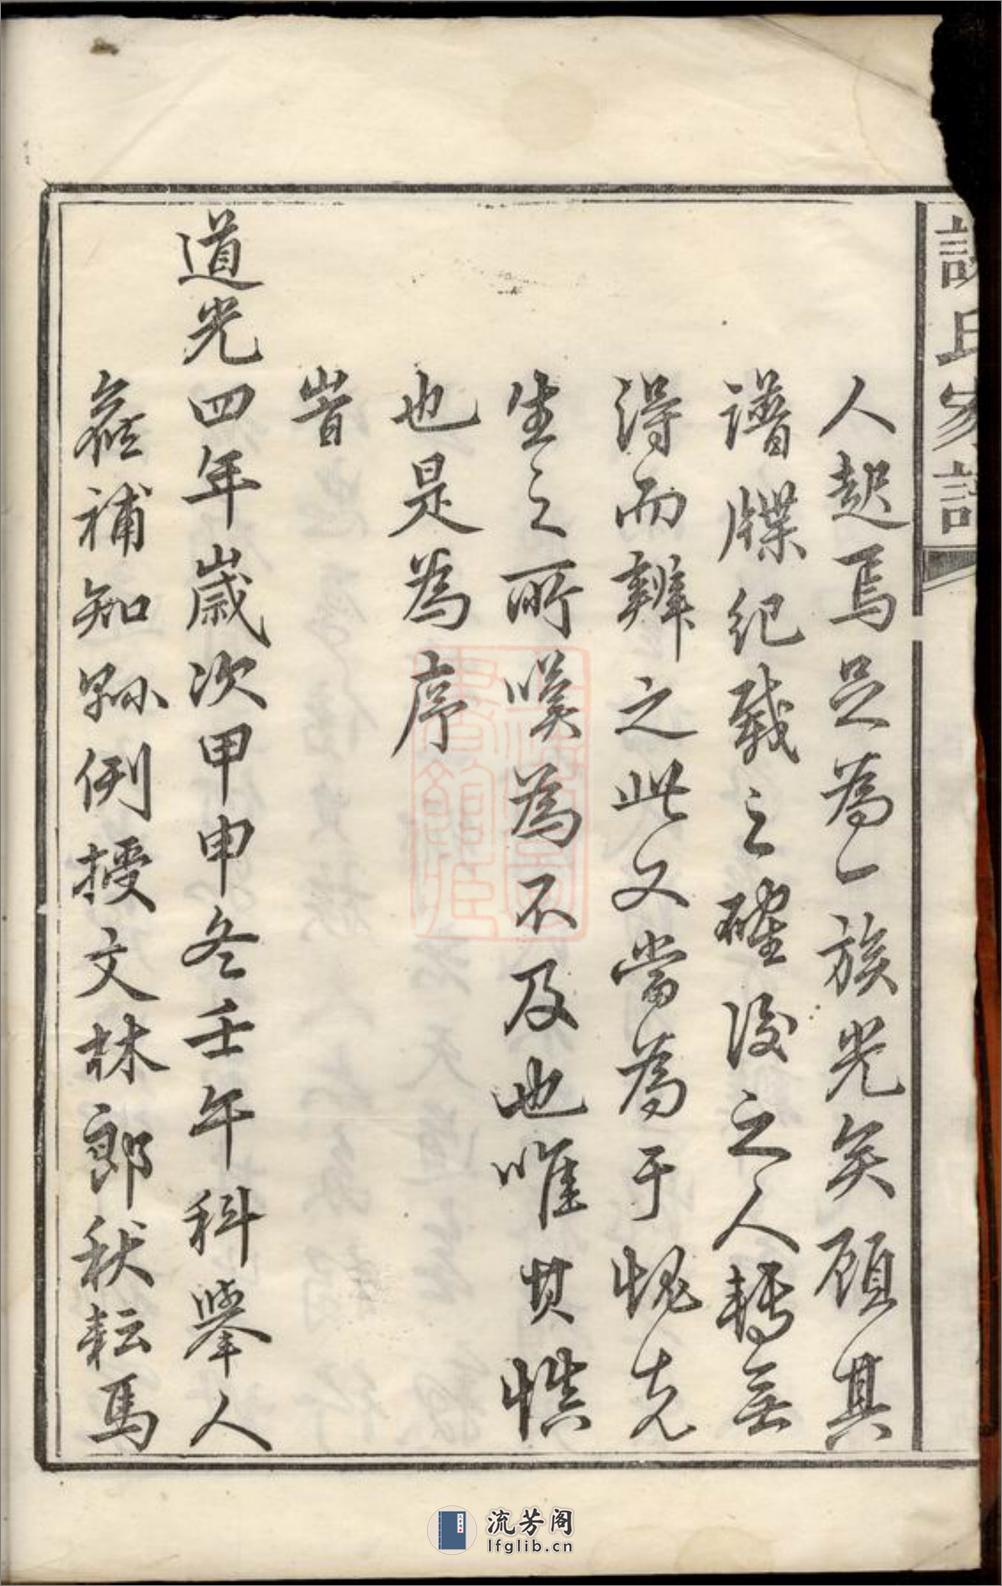 氏家譜
人起焉足為一族光矣顧其
譜牒紀載之確後之人轉無
得而辨之此又當為于愧克
生之所嘆為不及也唯其慎
也是為序
旹
道光四年歲次甲申冬壬午科舉人
候補知縣例授文林郎秋耘馬
流芳阁
lfglib.cn